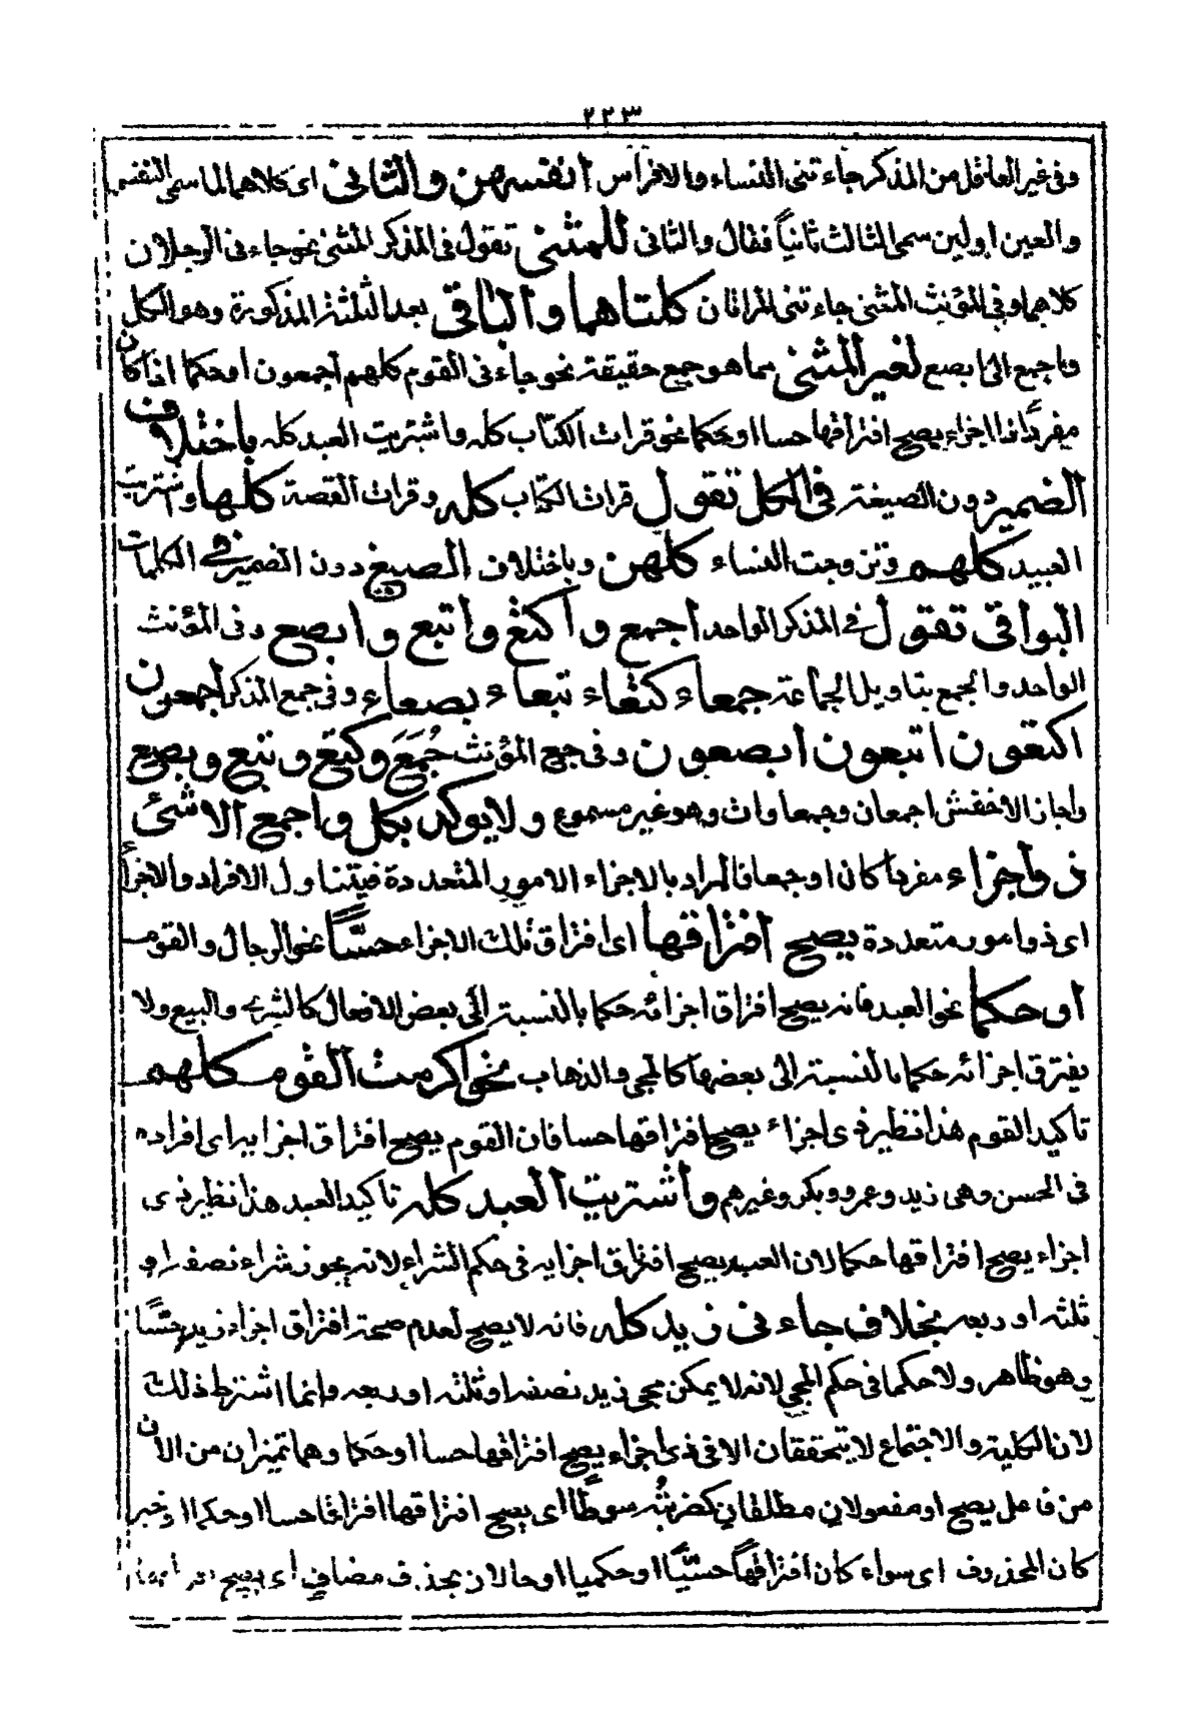 ٢٢٣
وفى غير العاقل من المذكر جاءتنى النساء والافراس انفسهن والثانى اى كلاهما لما سمى النفس
والعين اولين سمى الثالث ثانياً فقال والثانى للمثنى تقول فى المذكر المثنى نحو جاءنى الرجلان
كلاهما وفى المؤنث المثنى جاءتنى المراتان كلتاهما والباقى بعد الثلثة المذكورة وهو الكل
واجمع الى ابصع لغير المثنى مما هو جمع حقيقة نحو جاءنى القوم كلهم اجمعون او حكما اذا كان
مفردًا ذا اجزاء يصح افتراقها حسا او حكما نحو قرات الكتاب كله واشتريت العبد كله باختلاف
الضمير دون الصيغة فى الكل تقول قرات الكتاب كله وقرات القصة كلها واشتريت
العبيد كلهم وتزوجت النساء كلهن وباختلاف الصيغ دون الضمير فى الكلمات
البواقى تقول فى المذكر الواحد اجمع واكتع واتبع وابصع وفى المؤنث
الواحد والجمع بتاويل الجماعة جمعاء كتعاء تبعاء بصعاء وفى جمع المذكر اجمعون
اكتعون اتبعون ابصعون وفى جمع المؤنث جُمَعَ وكتع وتبع وبصع
واجاز الاخفش اجمعان وجمعاوات وهو غير مسموع ولا يوكد بكل واجمع الا شئ
ذو اجزاء مفردا كان او جمعا فالمراد بالاجزاء الامور المتعددة فيتناول الافراد والاجزاء
اى ذو امور متعددة يصح افتراقها اى افتراق تلك الاجزاء حسّاً نحو الرجال والقوم
او حكما نحو العبد فانه يصح افتراق اجزائه حكما بالنسبة الى بعض الافعال كالشرى والبيع ولا
يفترق اجزائه حكما بالنسبة الى بعضها كالمجى والذهاب نحو اكرمت القوم كلهم
تاكيد القوم هذا نظير ذى اجزاء يصح افتراقها حسا فان القوم يصح افتراق اجزايه اى افراده
فى الحسن وهى زيد وعمرو وبكر وغيرهم واشتريت العبد كله تاكيد العبد هذا نظير ذى
اجزاء يصح افتراقها حكما لان العبد يصح افتراق اجزايه فى حكم الشراء لانه يجوز شراء نصفه او
ثلثه او ربعه بخلاف جاءنى زيد كله فانه لا يصح لعدم صحة افتراق اجزاء زيد حسّاً
وهو ظاهر ولا حكما فى حكم المجى لانه لا يمكن مجى زيد نصفه او ثلثه او ربعه وانما اشترط ذلك
لان الكلية والاجتماع لا يتحققان الا فى ذى اجزاء يصح افتراقها حسا او حكما وهما تميزان من الان
من فاعل يصح او مفعولان مطلقان كضربتُه سوطاً اى يصح افتراقها افتراقا حسا او حكما او خبر
كان المحذوف اى سواء كان افتراقهاً حسّيّاً او حكميا او حالان بحذف مضاف اى يصح